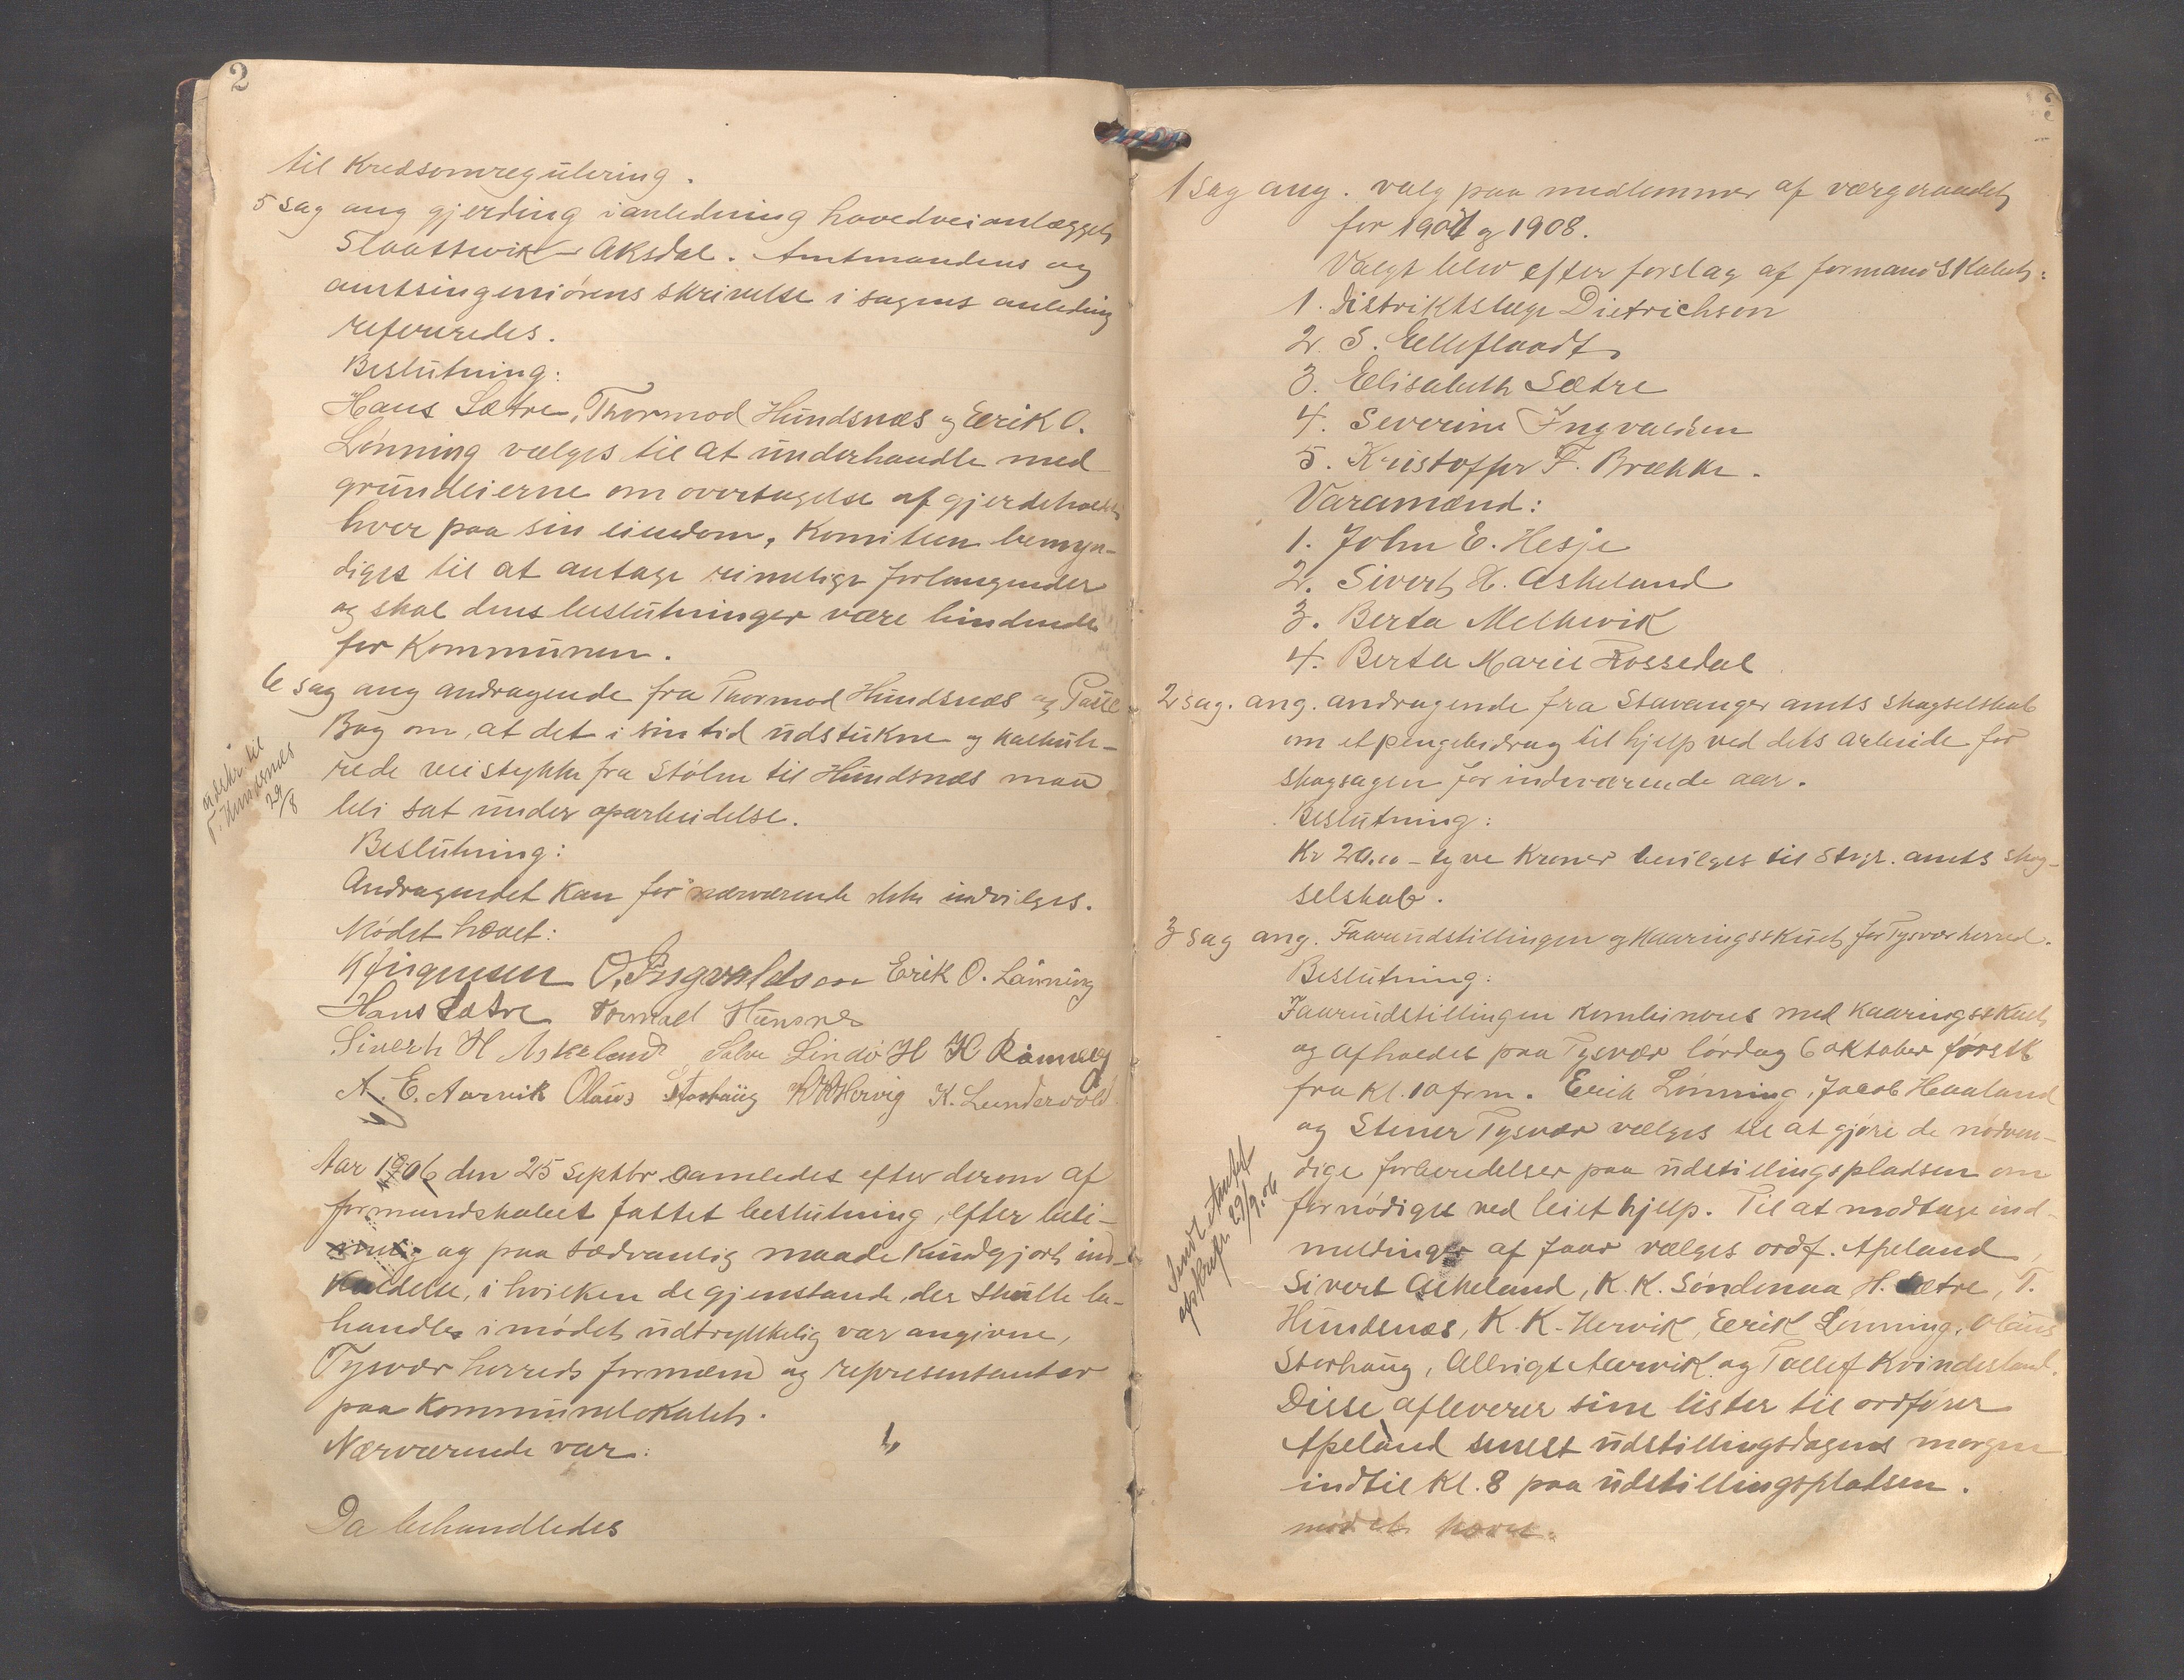 2
til Kredsomregulering.
5 sag ang gjerding i anledning hovedveianlægget
Slaattevik - Aksdal. Amtmandens og
amtsingeniörens skrivelse i sagens anledning
refereredes.
Beslutning:
Hans Sætre, Thormod Hundsnæs og Eerik O.
Lönning vælges til at underhandle med
grundeierne om overtagelse af gjerdeholdet
hver paa sin eiendom, Komiteen bemyn-
diges til at antage rimelige forlangender
og skal dens beslutninger være bindende
for Kommunen.
6 sag ang andragende fra Thormod Hundsnæs og Paul
Bog om, at det i sin tid udstukne og kalkule-
rede veistykke fra Stölm til Hundsnæs maa
bli sat under oparbeidelse.
udskr. til
T. Hundsnæs
29/8
Beslutning:
Andragendet kan for nærværende ikke indvilges.
Mödet hævet:
K Jörgensen O. Ingvaldsen Erik O. Lönning
Hans Sætre Tormod Hunsnes
Siverth H Askeland Salve Lindö H H Rönnevig
A. E. Aarvik Olaus Storhaug K. Lundervold
Aar 1906 den 25 Septbr. samledes efter derom af
formandskabet fattet beslutning, efter beti-
melig og paa sædvanlig maade kundgjort ind-
kaldelse, i hvilken de gjenstande, der skulle be-
handles i mödet udtrykkelig var angivne,
Tysvær herreds formænd og representanter
paa Kommunelokalet.
Nærværende var:
Da behandledes
1 sag ang. valg paa medlemmer afværgeraadet
for 1907 og 1908.
Valgt blev efter forslag af formandskabet:
1. Distriktslæge Dietrichson
2. S. Eelleflaadt
3. Elisabeth Sætre
4. Severine Ingvaldsen
5. Kristoffer F. Brække.
Varamænd:
1. John E. Hesje
2. Sivert H. Askeland
3. Berta Melkevik
4. Berta Marie Fossedal
2 sag. ang. andragende fra Stavanger amts skogselskab
om et pengebidrag til hjelp ved dets arbeide for
skogsagen for indeværende aar.
Beslutning:
Kr 20.00 - tyve Kroner bevilges til Stvgr. amts skog-
selskab.
3 sag ang. Faareudstillingen og Kaaringsskuet for Tysvær herred.
Beslutning:
Faareudstillingen kombineres med Kaaringsskuet
og afholdes paa Tysvær lördag 6 oktober förstk
fra Kl. 10 form. Eerik Lönning, Jacob Haaland
og Stener Tysvær vælges til at gjöre de nödven-
dige forberedelser paa udstillingspladsen om
fornödiget ved leiet hjelp. Til at modtage ind-
meldinger af faar vælges ordf. Apeland,
Sendt Amtet
afskrift 29/9.06
Sivert Askeland, K. K. Söndenaa H. Sætre, T.
Hundsnæs, K. K. Hervik, Eerik Lönning, Olaus
Storhaug, Allrigt Aarvik og Tollef Kvindesland.
Disse afleverer sine lister til ordförer
Apeland senest udstillingsdagens morgen
indtil Kl. 8 paa udstillingspladsen.
mödet hævet.